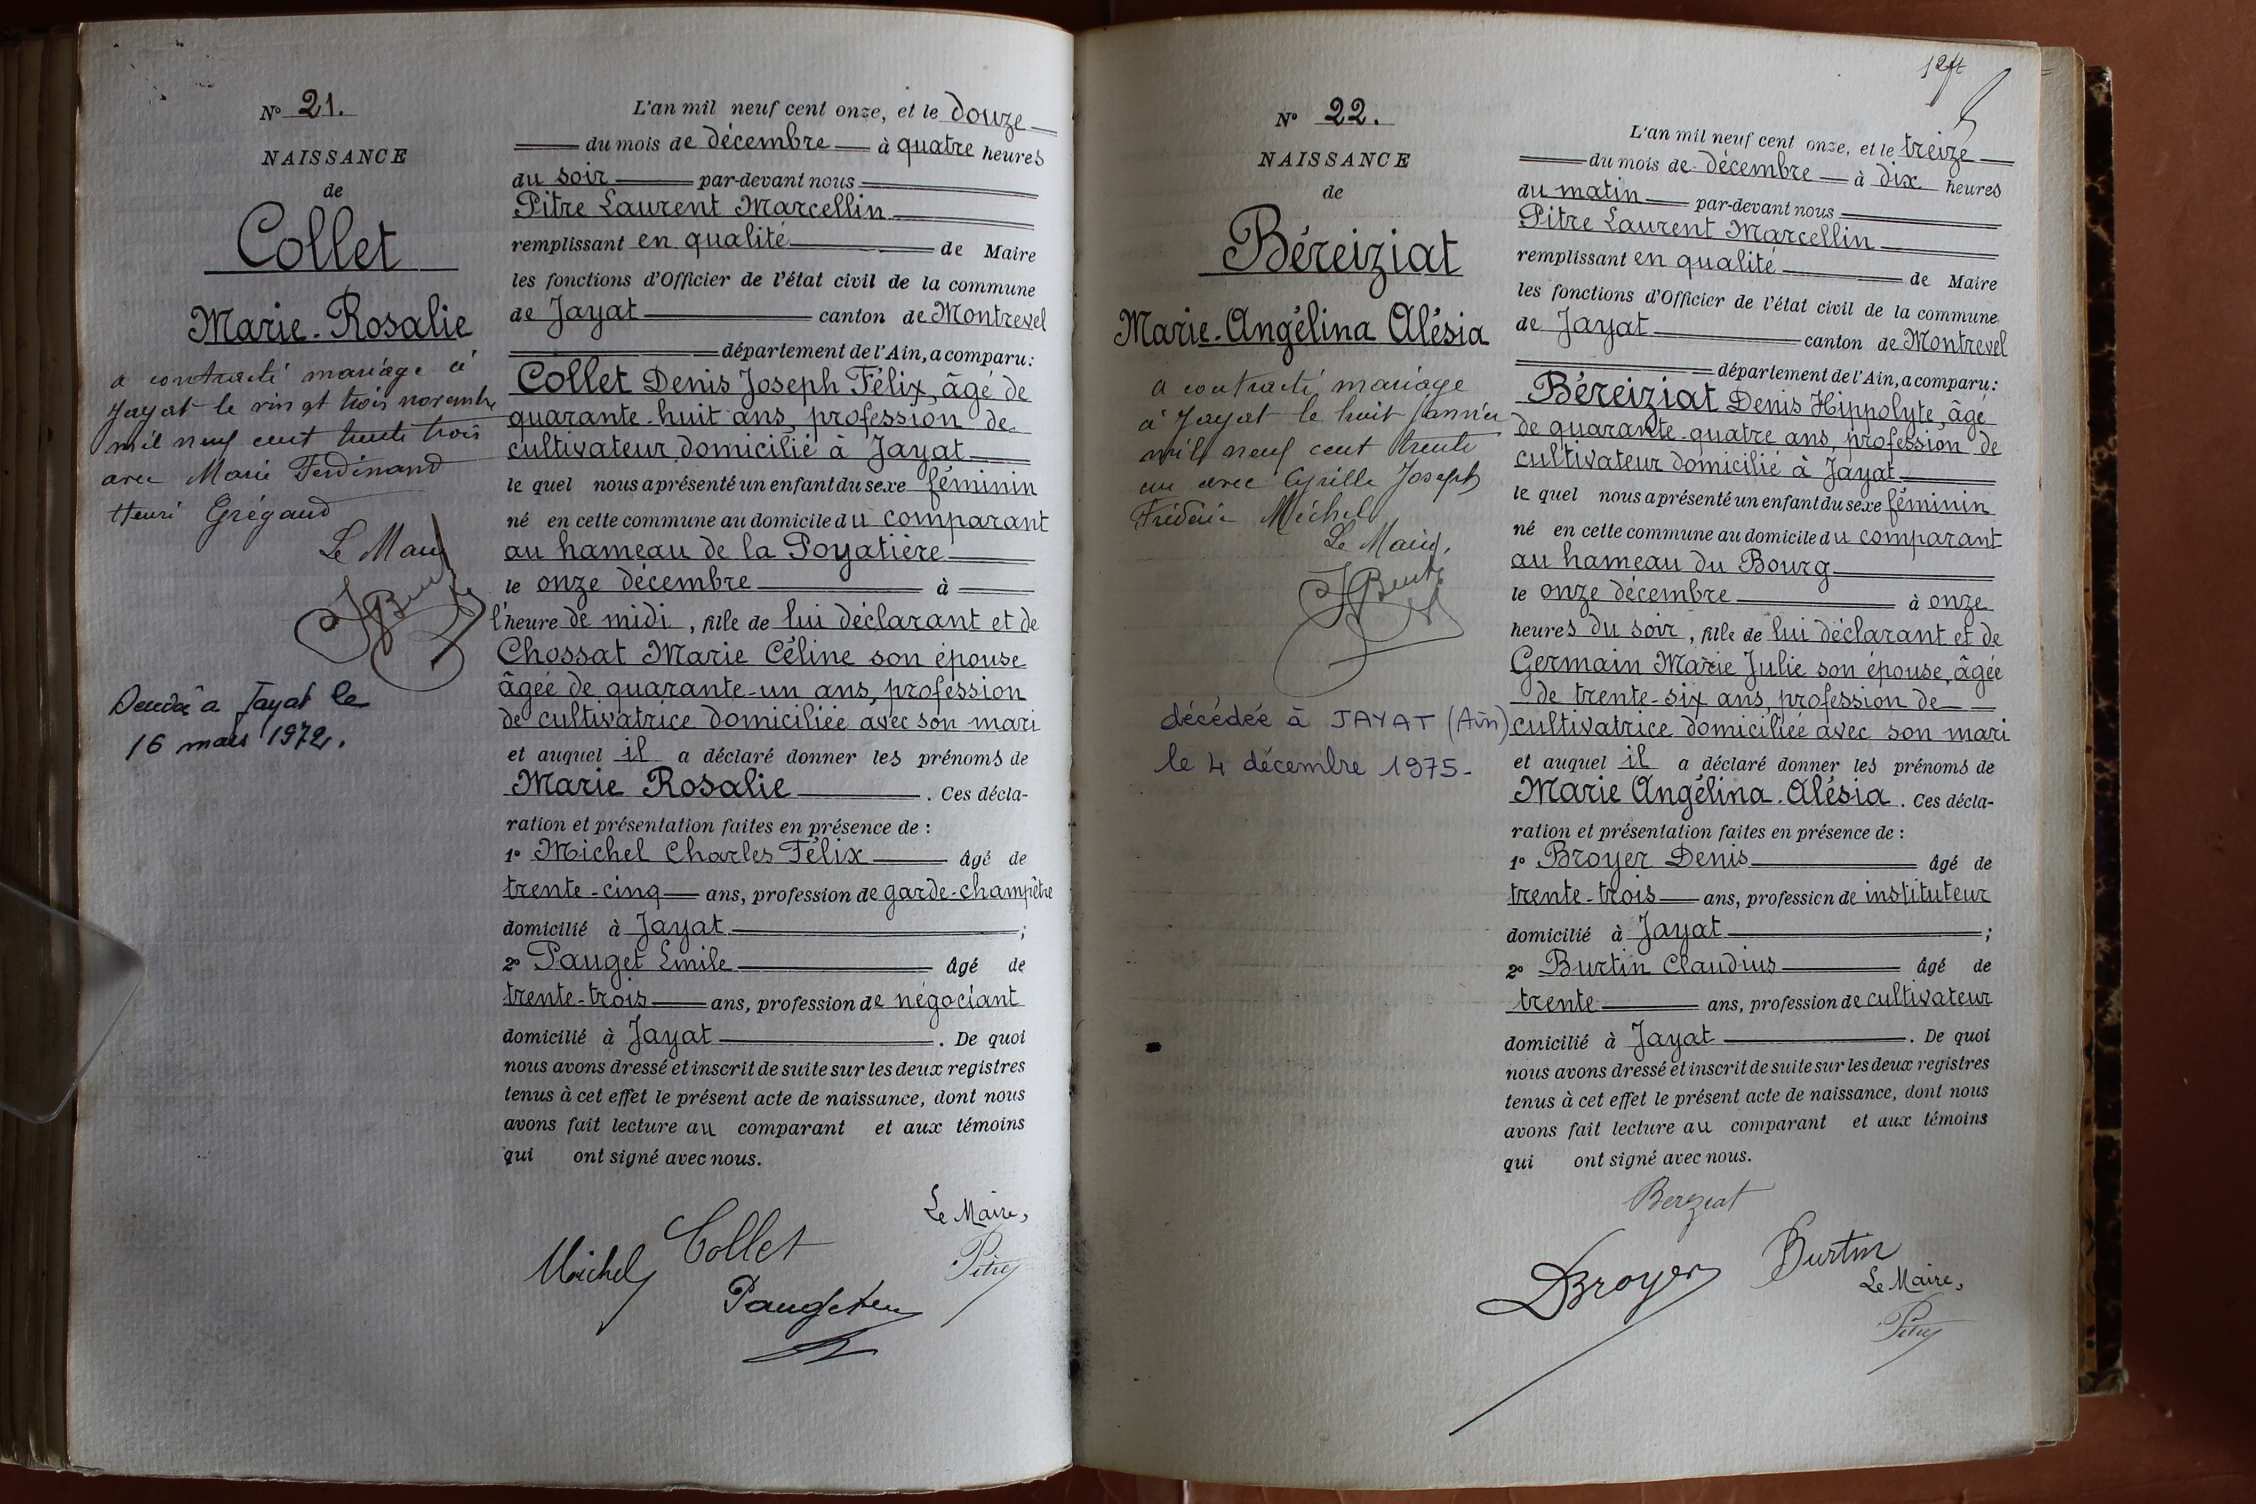 N° 21.
NAISSANCE
de
Collet
Marie-Rosalie
a contracté mariage à
Jayat le vingt trois novembre
mil neuf cent trente trois
avec Marie Ferdinand
Henri Grégaud
Le Maire
Décédée à Jayat le
16 mars 1972.
L'an mil neuf cent onze, et le douze
du mois de décembre à quatre heures
du soir par-devant nous
Pitre Laurent Marcellin
remplissant en qualité de Maire
les fonctions d'Officier de l'état civil de la commune
de Jayat canton de Montrevel
département de l'Ain, a comparu:
Collet Denis Joseph Félix, âgé de
quarante-huit ans, profession de
cultivateur domicilié à Jayat
le quel nous a présenté un enfant du sexe féminin
né en cette commune au domicile du comparant
au hameau de la Poyatière
le onze décembre à
l'heure de midi, fille de lui déclarant et de
Chossat Marie Céline son épouse
âgée de quarante-un ans, profession
de cultivatrice domiciliée avec son mari
et auquel il a déclaré donner les prénoms de
Marie Rosalie. Ces décla-
ration et présentation faites en présence de :
1° Michel Charles Félix âgé de
trente-cinq ans, profession de garde-champêtre
domicilié à Jayat ;
2° Pauget Emile âgé de
trente-trois ans, profession de négociant
domicilié à Jayat. De quoi
nous avons dressé et inscrit de suite sur les deux registres
tenus à cet effet le présent acte de naissance, dont nous
avons fait lecture au comparant et aux témoins
qui ont signé avec nous.
Le Maire,
Michel Collet Pitre
N° 22.
NAISSANCE
de
Béreiziat
Marie-Angélina Alésia
a contracté mariage
à Jayat le huit janvier
mil neuf cent trente
un avec Cyrille Joseph
Frédéric Michel
Le Maire,
décédée à JAYAT (Ain)
le 4 décembre 1975-
L'an mil neuf cent onze, et le treize
du mois de décembre à dix heures
du matin par-devant nous
Pitre Laurent Marcellin
remplissant en qualité de Maire
les fonctions d'Officier de l'état civil de la commune
de Jayat canton de Montrevel
département de l'Ain, a comparu:
Béreiziat Denis Hippolyte, âgé
de quarante-quatre ans, profession de
cultivateur domicilié à Jayat
le quel nous a présenté un enfant du sexe féminin
né en cette commune au domicile du comparant
au hameau du Bourg
le onze décembre à onze
heures du soir, fille de lui déclarant et de
Germain Marie Julie son épouse, âgée
de trente-six ans, profession de
cultivatrice domiciliée avec son mari
et auquel il a déclaré donner les prénoms de
Marie Angélina-Alésia. Ces décla-
ration et présentation faites en présence de :
1° Broyer Denis âgé de
trente-trois ans, profession de instituteur
domicilié à Jayat ;
2° Burtin Claudius âgé de
trente ans, profession de cultivateur
domicilié à Jayat. De quoi
nous avons dressé et inscrit de suite sur les deux registres
tenus à cet effet le présent acte de naissance, dont nous
avons fait lecture au comparant et aux témoins
qui ont signé avec nous.
Bereziat
DBroyer Burtin
Le Maire,
Pitre